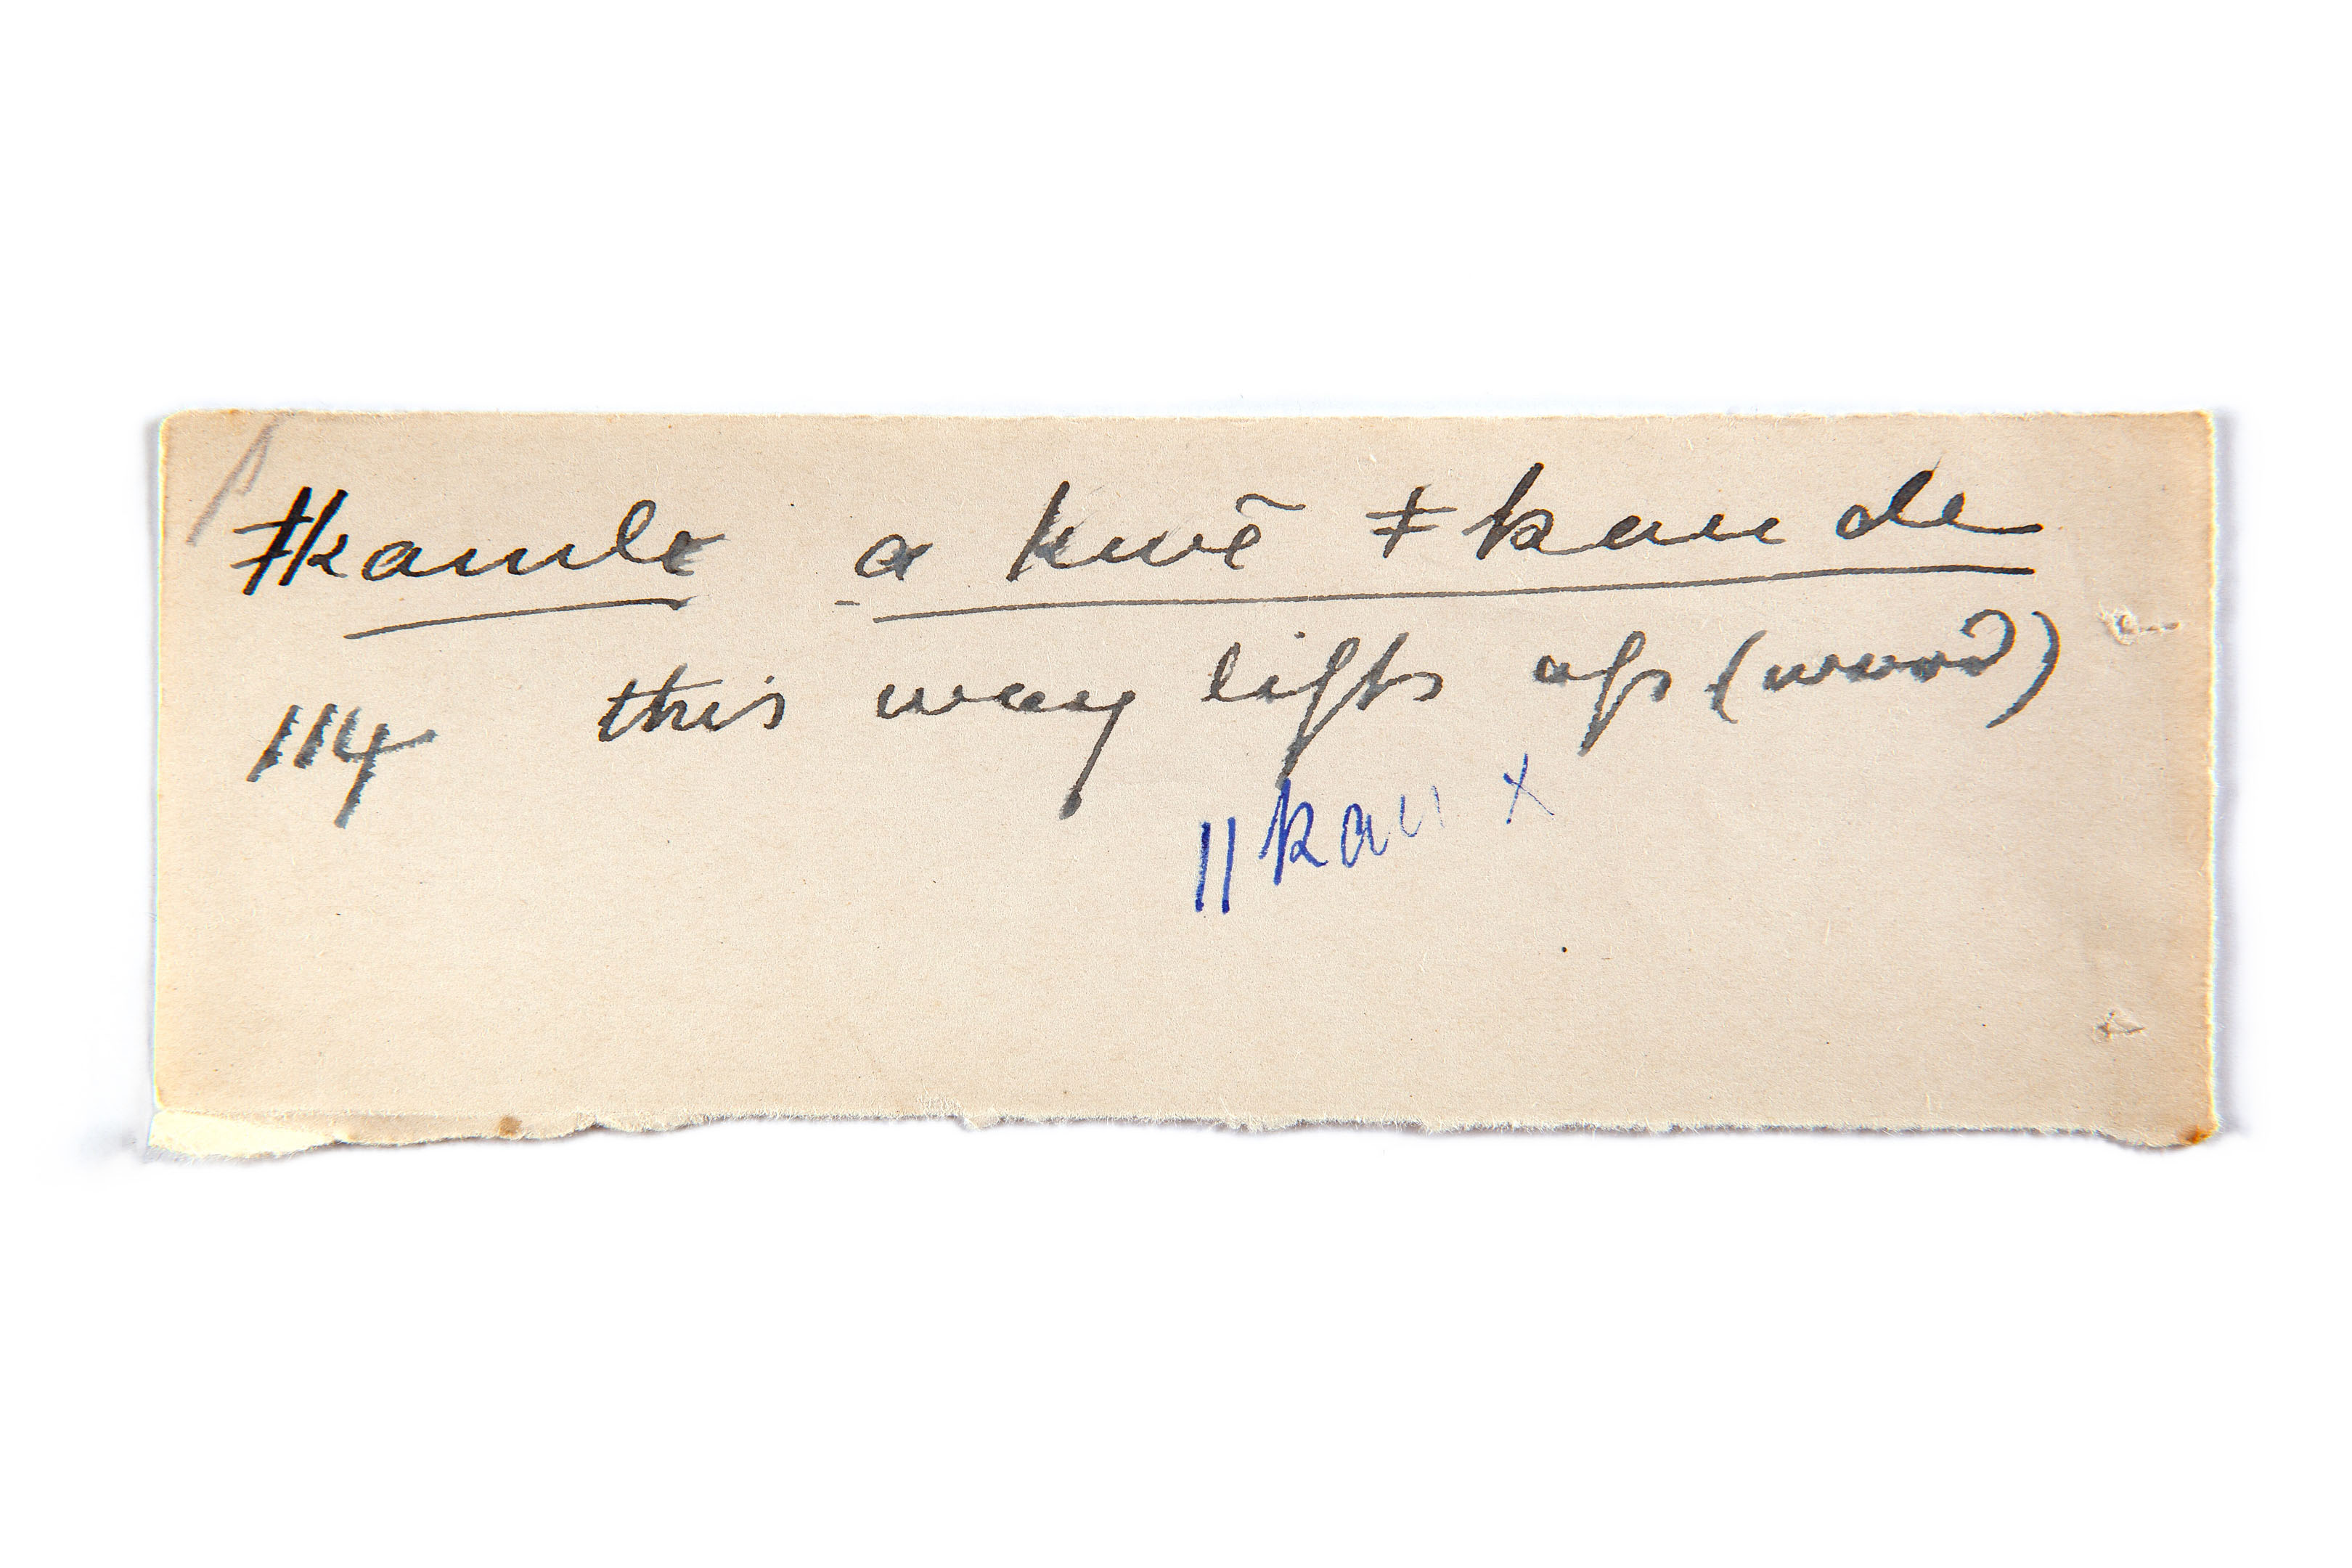 ǂkaule a kwē ǂkau de
114 this way lifts up (wood)
ǁkau x